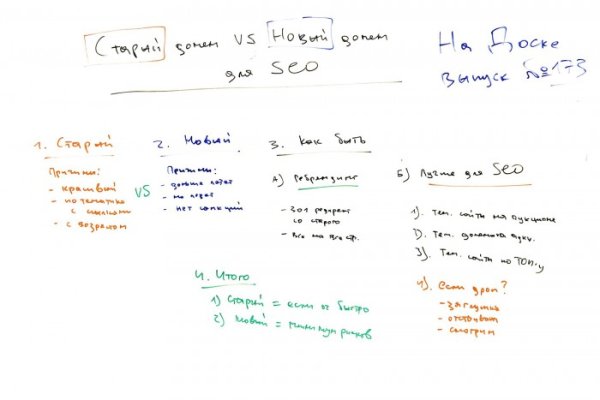 Старый домен VS Новый домен
для SEO
На Доске
выпуск №173
1. Старый
Причины:
- красивый
- по тематике
с ссылками
- с возрастом
VS
2. Новый
Причины:
- дольше
- нет санкций
3. Как быть
А) Ребрендинг
- 301 редирект
со старого
- все на все стр.
Б) Лучше для SEO
1). Тем. сайты на аукционе
2). Тем. домена аукц.
3). Тем. сайты по ТОП-у
4). если дроп?
- заглушка
- отстаиваем
- смотрим
4. Итого
1) Старый = если ог быстро
2) Новый = минимум рисков